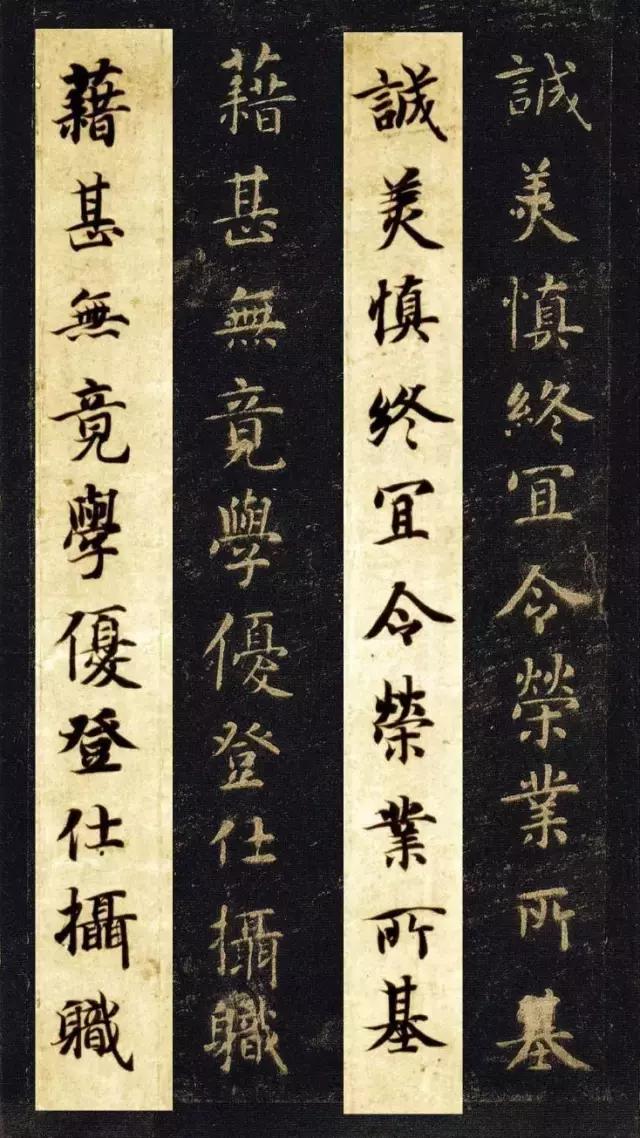 誠美慎終宜令榮業所基
誠美慎終宜令榮業所基
藉甚無竟學優登仕攝職
藉甚無竟學優登仕攝職